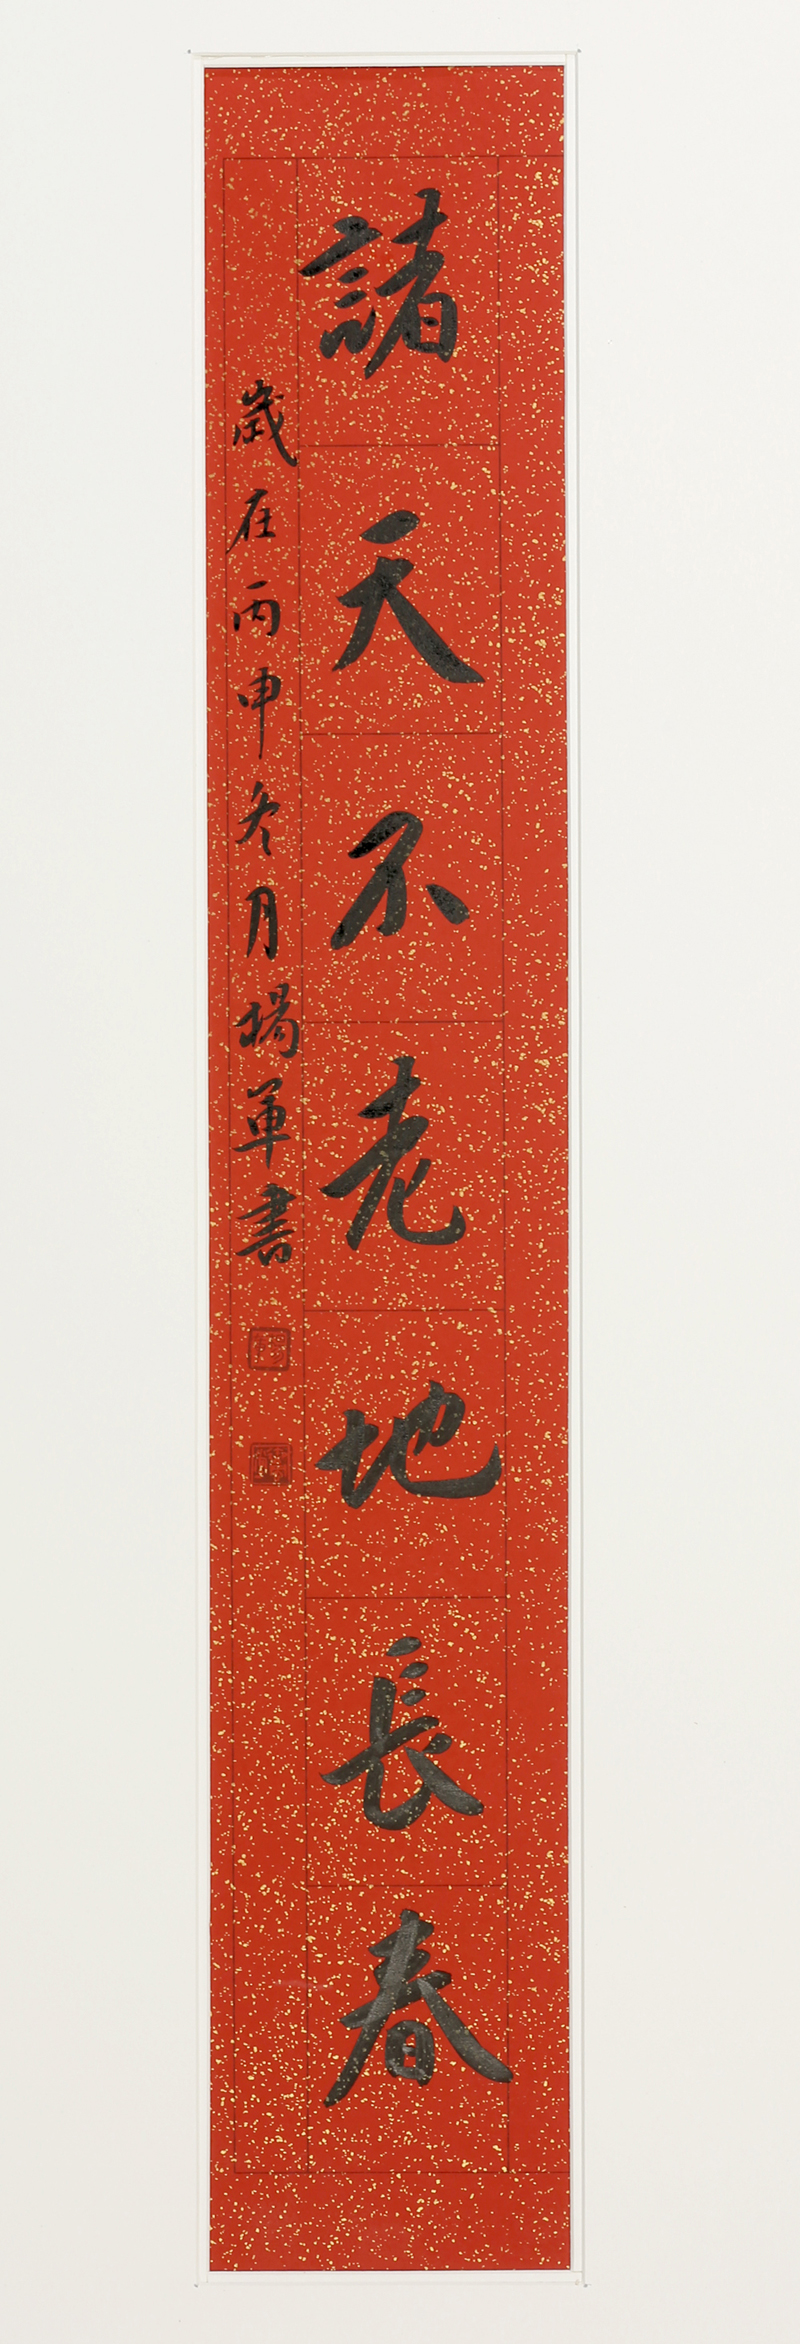 諸天不老地長春
歲在丙申冬月楊軍書